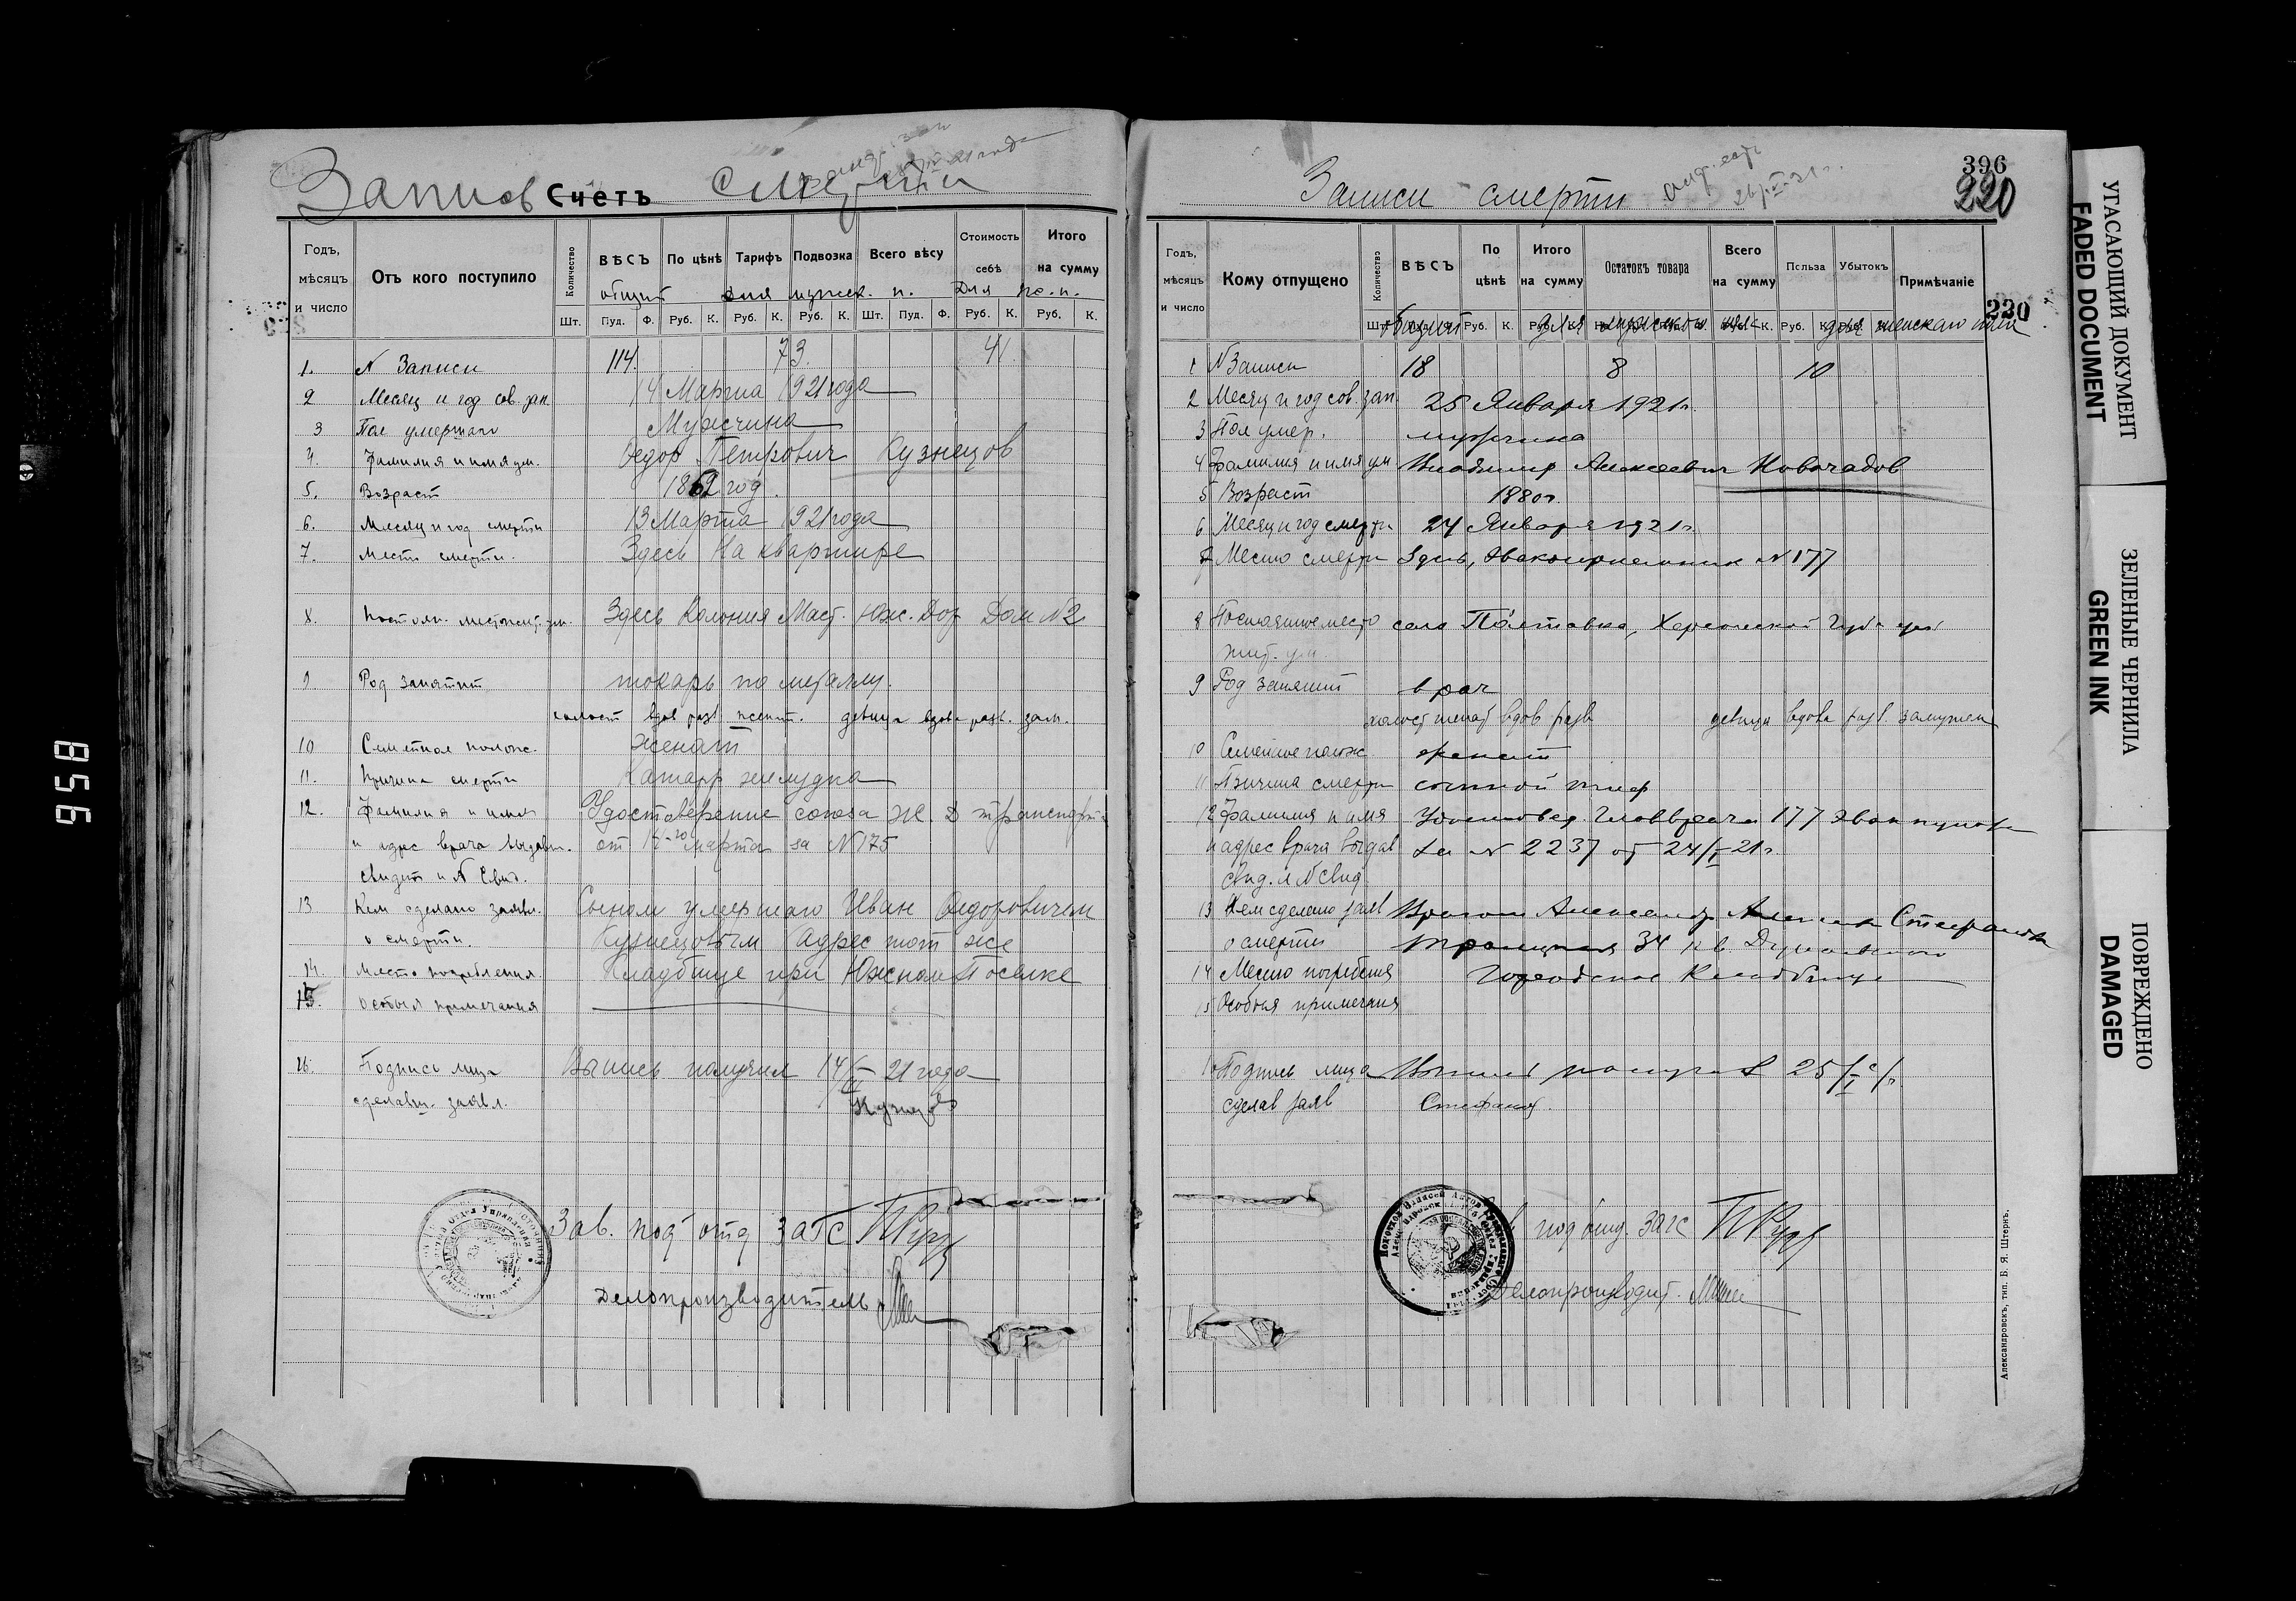 Запись Счетъ смерти
Годъ, мѣсяцъ и число
Отъ кого поступило
Количество
ВѢСЪ
По цѣнѣ
Тарифъ
Подвозка
Всего вѣсу
Стоимость себѣ
Итого на сумму
общий для мужск. п. Для ж. п.
Шт. Пуд. Ф. Руб. К. Руб. К. Руб. К. Шт. Пуд. Ф. Руб. К. Руб. К.
1. N Записи 114. 73. 41.
2 Месяц и год сов. зап. 14 Марта 1921 года
3 Пол умершаго Мужчина
4. Фамилия и имя ум. Федор Петрович Кузнецов
5. Возраст 1862 год.
6. Месяц и год смерти 13 Марта 1921 года
7. Место смерти. Здесь На квартире
8. Постоян. местожит. ум. Здесь Колония Маст. Юж. Дор Дом N2
9 Род занятий токарь по металлу.
холост вдов разв женат. девица вдова разв. зам.
10 Семейное полож. Женат
11. Причина смерти Катарр желудка
12. Фамилия и имя Удостоверение союза Ж. Д транспорта
и адрес врача выдавш. от 14-го марта за N175
свидет и N Свид.
13 Кем сделано заявл. Сыном умершаго Иван Федоровичем
о смерти. Кузнецовым Адрес тот же
14. Место погребения. Кладбище при Южном Поселке
15. Особыя примечания
16. Подпись лица Выпись получил 14/III 21 года
сделавш. заявл. Кузнецов
Зав. подотд загс
Делопроизводитель
Записи смерти
396
220
220
Годъ, мѣсяцъ и число
Кому отпущено
Количество
ВѢСЪ
По цѣнѣ
Итого на сумму
Остатокъ товара
Всего на сумму
Польза
Убытокъ
Примѣчаніе
общий для мужскаго пола для женскаго пола
1 N Записи 18 8 10
2 Месяц и год сов. зап. 25 Января 1921 г.
3 Пол умер. мужчина
4 Фамилия и имя ум Владимир Алексеевич Новочадов
5 Возраст 1880 г.
6 Месяц и год смерти 24 Января 1921 г.
7 Место смерти Здесь, Эвакоприемник N 177
8 Постоянное место село Полтавка, Херсонской Губ.
жит. ум.
9 Род занятий врач
холост женат вдов разв девица вдова разв. замужем
10 Семейное полож женат
11 Причина смерти сыпной тиф
12 Фамилия и имя Удостовер. Главврача 177 эвакпункта
и адрес врача выдав за N 2237 от 24/I 21 г.
свид. и N свид.
13 Кем сделано заяв Врачом
о смерти Троицкая 34 кв.
14 Место погребения Городское Кладбище
15 Особыя примечания
16 Подпись лица Выпись получил 25/I
сделав заяв
подотд. загс
Делопроизводит.
Александровскъ, тип. Б. Я. Штернъ.
УГАСАЮЩИЙ ДОКУМЕНТ
FADED DOCUMENT
ЗЕЛЕНЫЕ ЧЕРНИЛА
GREEN INK
ПОВРЕЖДЕНО
DAMAGED
856